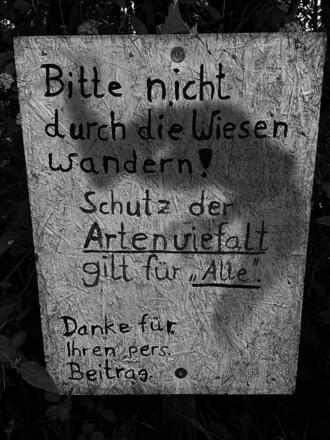 Bitte nicht
durch die Wiesen
wandern!
Schutz der
Artenviefalt
gilt für „Alle".
Danke für
Ihren pers.
Beitrag.